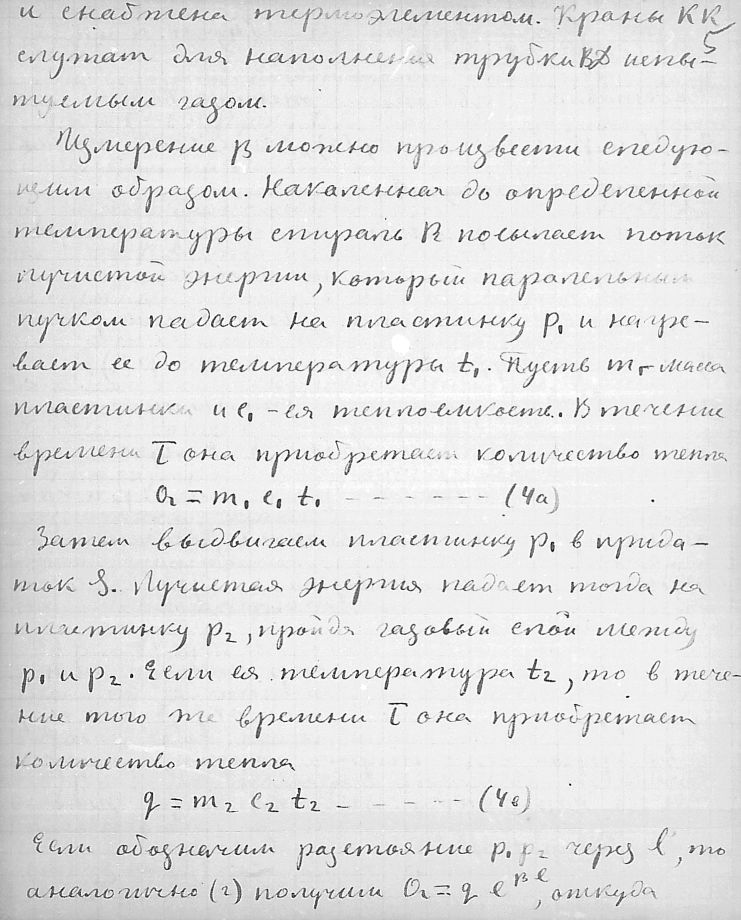 и снабжена термоэлементом. Краны KK
5
служат для наполнения трубки BD испы-
туемым газом.
Измерение β можно произвести следую-
щим образом. Накаленная до определенной
температуры спираль R посылает поток
лучистой энергии, который паралельным
пучком падает на пластинку p₁ и нагре-
вает ее до температуры t₁. Пусть m₁ - масса
пластинки и c₁ - ея теплоемкость. В течение
времени T она приобретает количество тепла
Q = m₁ c₁ t₁ - - - - - - (4a)
Затем выдвигаем пластинку p₁ в прида-
ток S. Лучистая энергия падает тогда на
пластинку p₂, пройдя газовый слой между
p₁ и p₂. Если ея температура t₂, то в тече-
ние того же времени T она приобретает
количество тепла
q = m₂ c₂ t₂ - - - - - - (4в)
Если обозначим разстояние p₁ p₂ через l, то
аналогично (2) получим Q = q e^{βl}, откуда